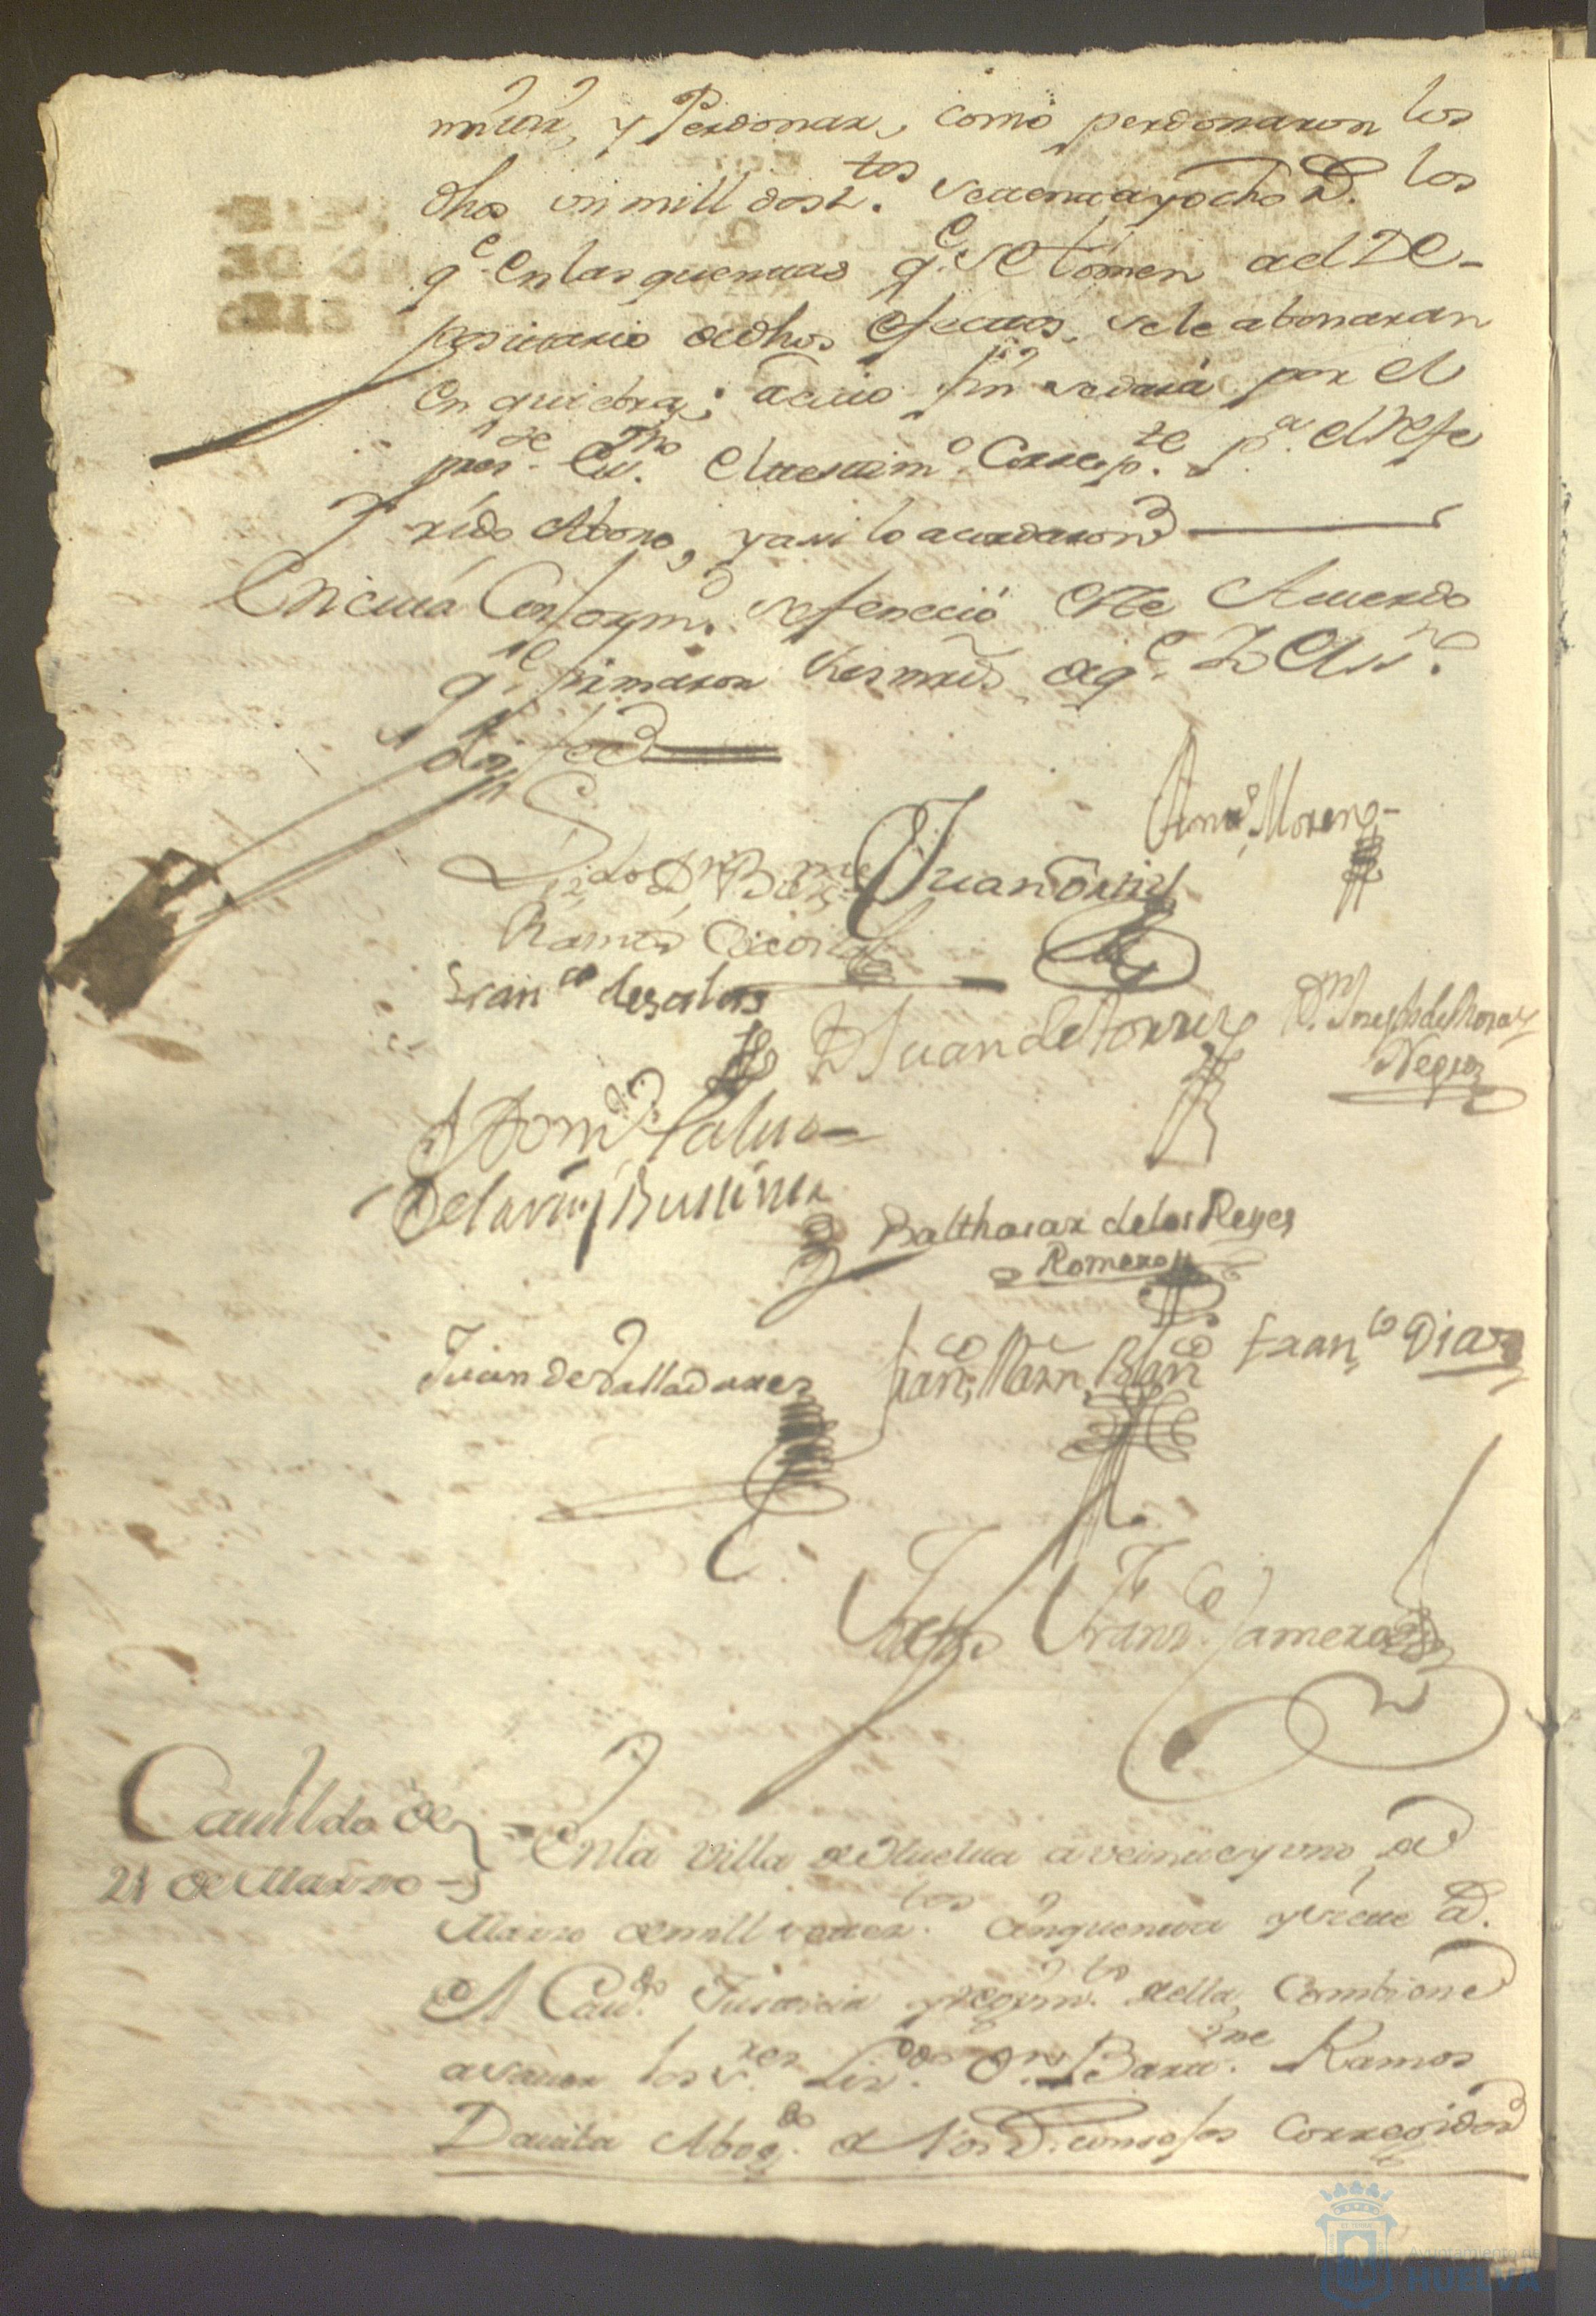 mitir, y Perdonar, como perdonaron los
dhos un mill dosz.tos settenta y ocho R.s los
q.e en las quenttas q.e se tomen al De-
posittario de dhos efecttos, se le abonaran
en quiebra; a cuio fin se dará por el
pres.te Es.no el testtim.o Corresp.te p.a el Refe
rido Abono, y assi lo acordaron
En cuia Conform.d se feneció este Acuerdo
q.e firmaron sus mrds de q.e Yo el Ess.no
doi fee
Lizdo Dn Barme
Ramos Davila
Juan Ortiz
Antt.o Moreno
Fran.co de salas
D Juan de torres
D.n Joseph de Rosas
Negro
Balthasar de los Reyes
Romero
Juan de Valladares
Fran.co Marn Blanco
Fran.co Diaz
Joseph Fran.co Jamero
Cauildo de
21 de Marzo
En la Villa de Huelua a veintte y uno de
Marzo de mill settez.tos cinquentta y siette a.s
El Cau.do Justticia y rejim.to della, Combiene
a sauer los s.res Liz.do D.n Bartt.me Ramos
Dauila Abog.do de los R.s consejos Correjidor
Ayuntamiento de
HUELVA